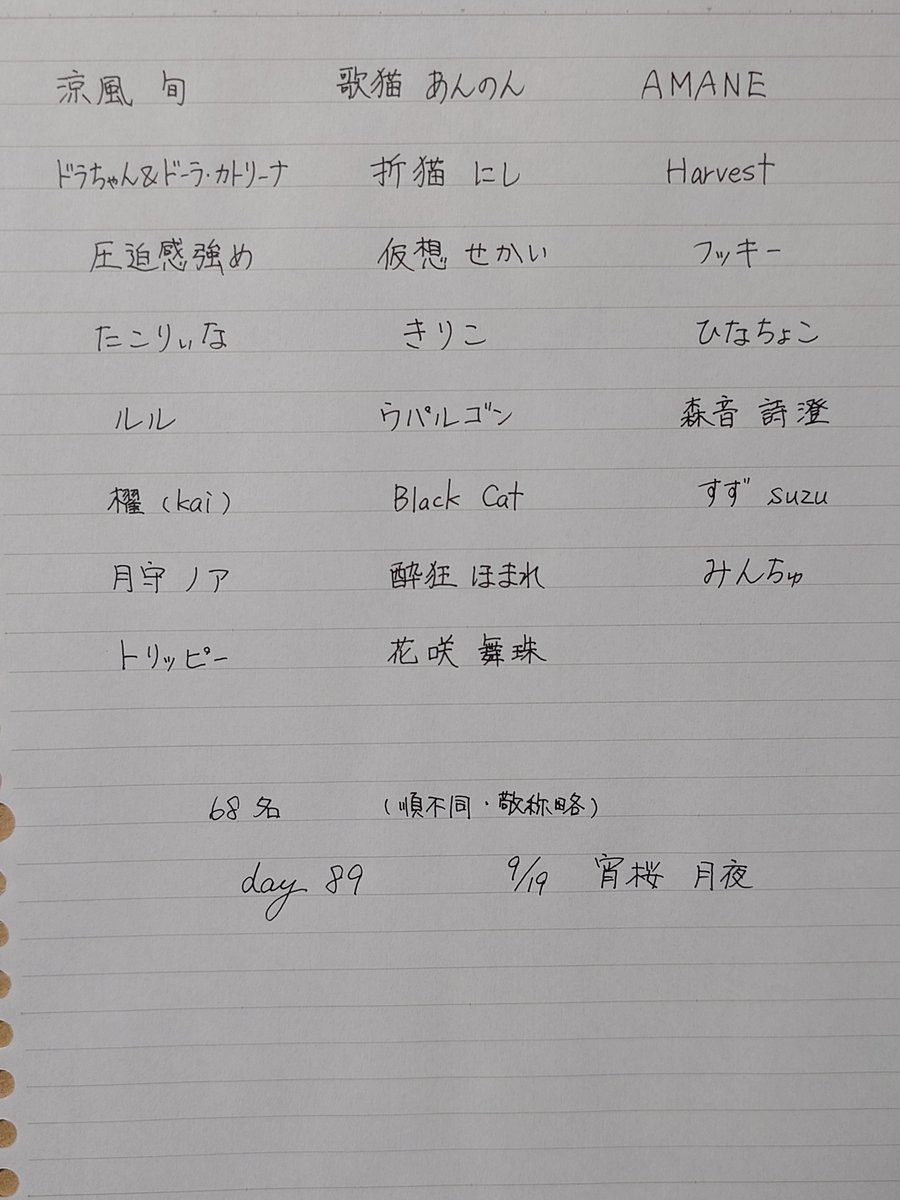 涼風 旬 歌猫 あんのん AMANE
ドラちゃん&ドーラ・カトリーナ 折猫 にし Harvest
圧迫感強め 仮想 せかい フッキー
たこりぃな きりこ ひなちょこ
ルル ウパルゴン 森音 詩澄
櫂(kai) Black Cat すず suzu
月守 ノア 酔狂 ほまれ みんちゅ
トリッピー 花咲 舞珠
68名 (順不同・敬称略)
day 89 9/19 宵桜 月夜